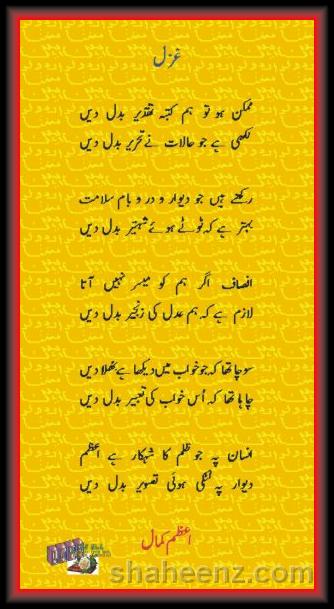 غزل
ممکن ہو تو ہم کتبۂ تقدیر بدل دیں
لکھی ہے جو حالات نے تحریر بدل دیں
رکھنے ہیں جو دیوار و در و بام سلامت
بہتر ہے کہ ٹوٹے ہوئے شہتیر بدل دیں
انصاف اگر ہم کو میسر نہیں آتا
لازم ہے کہ ہم عدل کی زنجیر بدل دیں
سوچا تھا کہ جو خواب میں دیکھا ہے بھلا دیں
چاہا تھا کہ اُس خواب کی تعبیر بدل دیں
انسان پہ جو ظلم کا شہکار ہے اعظم
دیوار پہ لٹکی ہوئی تصویر بدل دیں
اعظم کمال
shaheenz.com